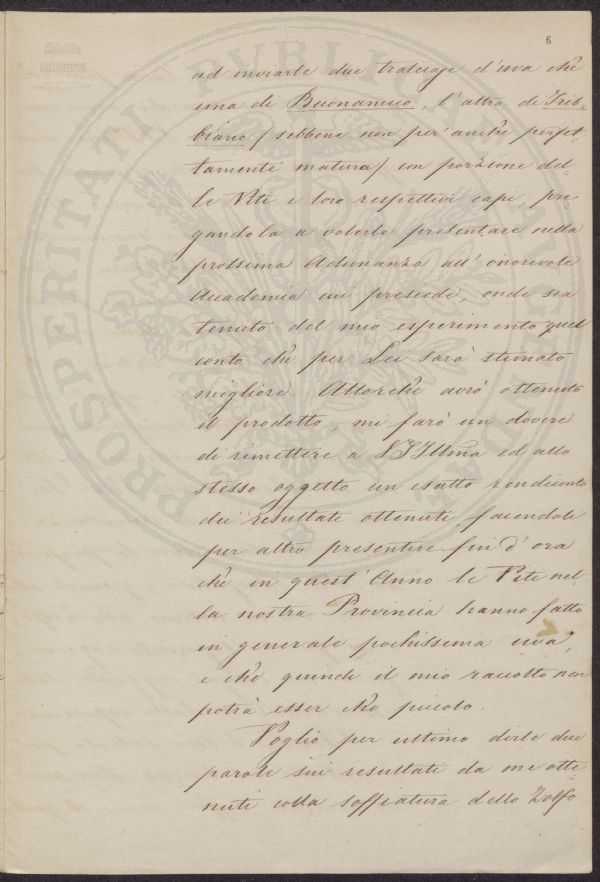 6
ad inviarle due tralciaje d'uva chè
una di Buonamico, l'altra di Treb-
biano (sebbene non per anche perfet-
tamente matura) con porzione del-
le Viti e loro respettivi capi, pre-
gandola a volerle presentare nella
prossima Adunanza all' onorevole
Accademia cui presiede, onde sia
tenuto del mio esperimento quel
conto chè per Lei sarà stimato
migliore. Allorchè avrò ottenuto
il prodotto, mi farò un dovere
di rimettere a V.S. Illma ed allo
stesso oggetto un esatto rendiconto
dei resultati ottenuti, facendole
per altro presentire fin d' ora
chè in quest' Anno le Vite nel-
la nostra Provincia hanno fatto
in generale pochissima uva,
e chè quindi il mio raccolto non
potrà esser chè piccolo.
Voglio per ultimo dirle due
parole sui resultati da me otte-
nuti colla soffiatura dello Zolfo
PROSPERITATI PUBLICAE